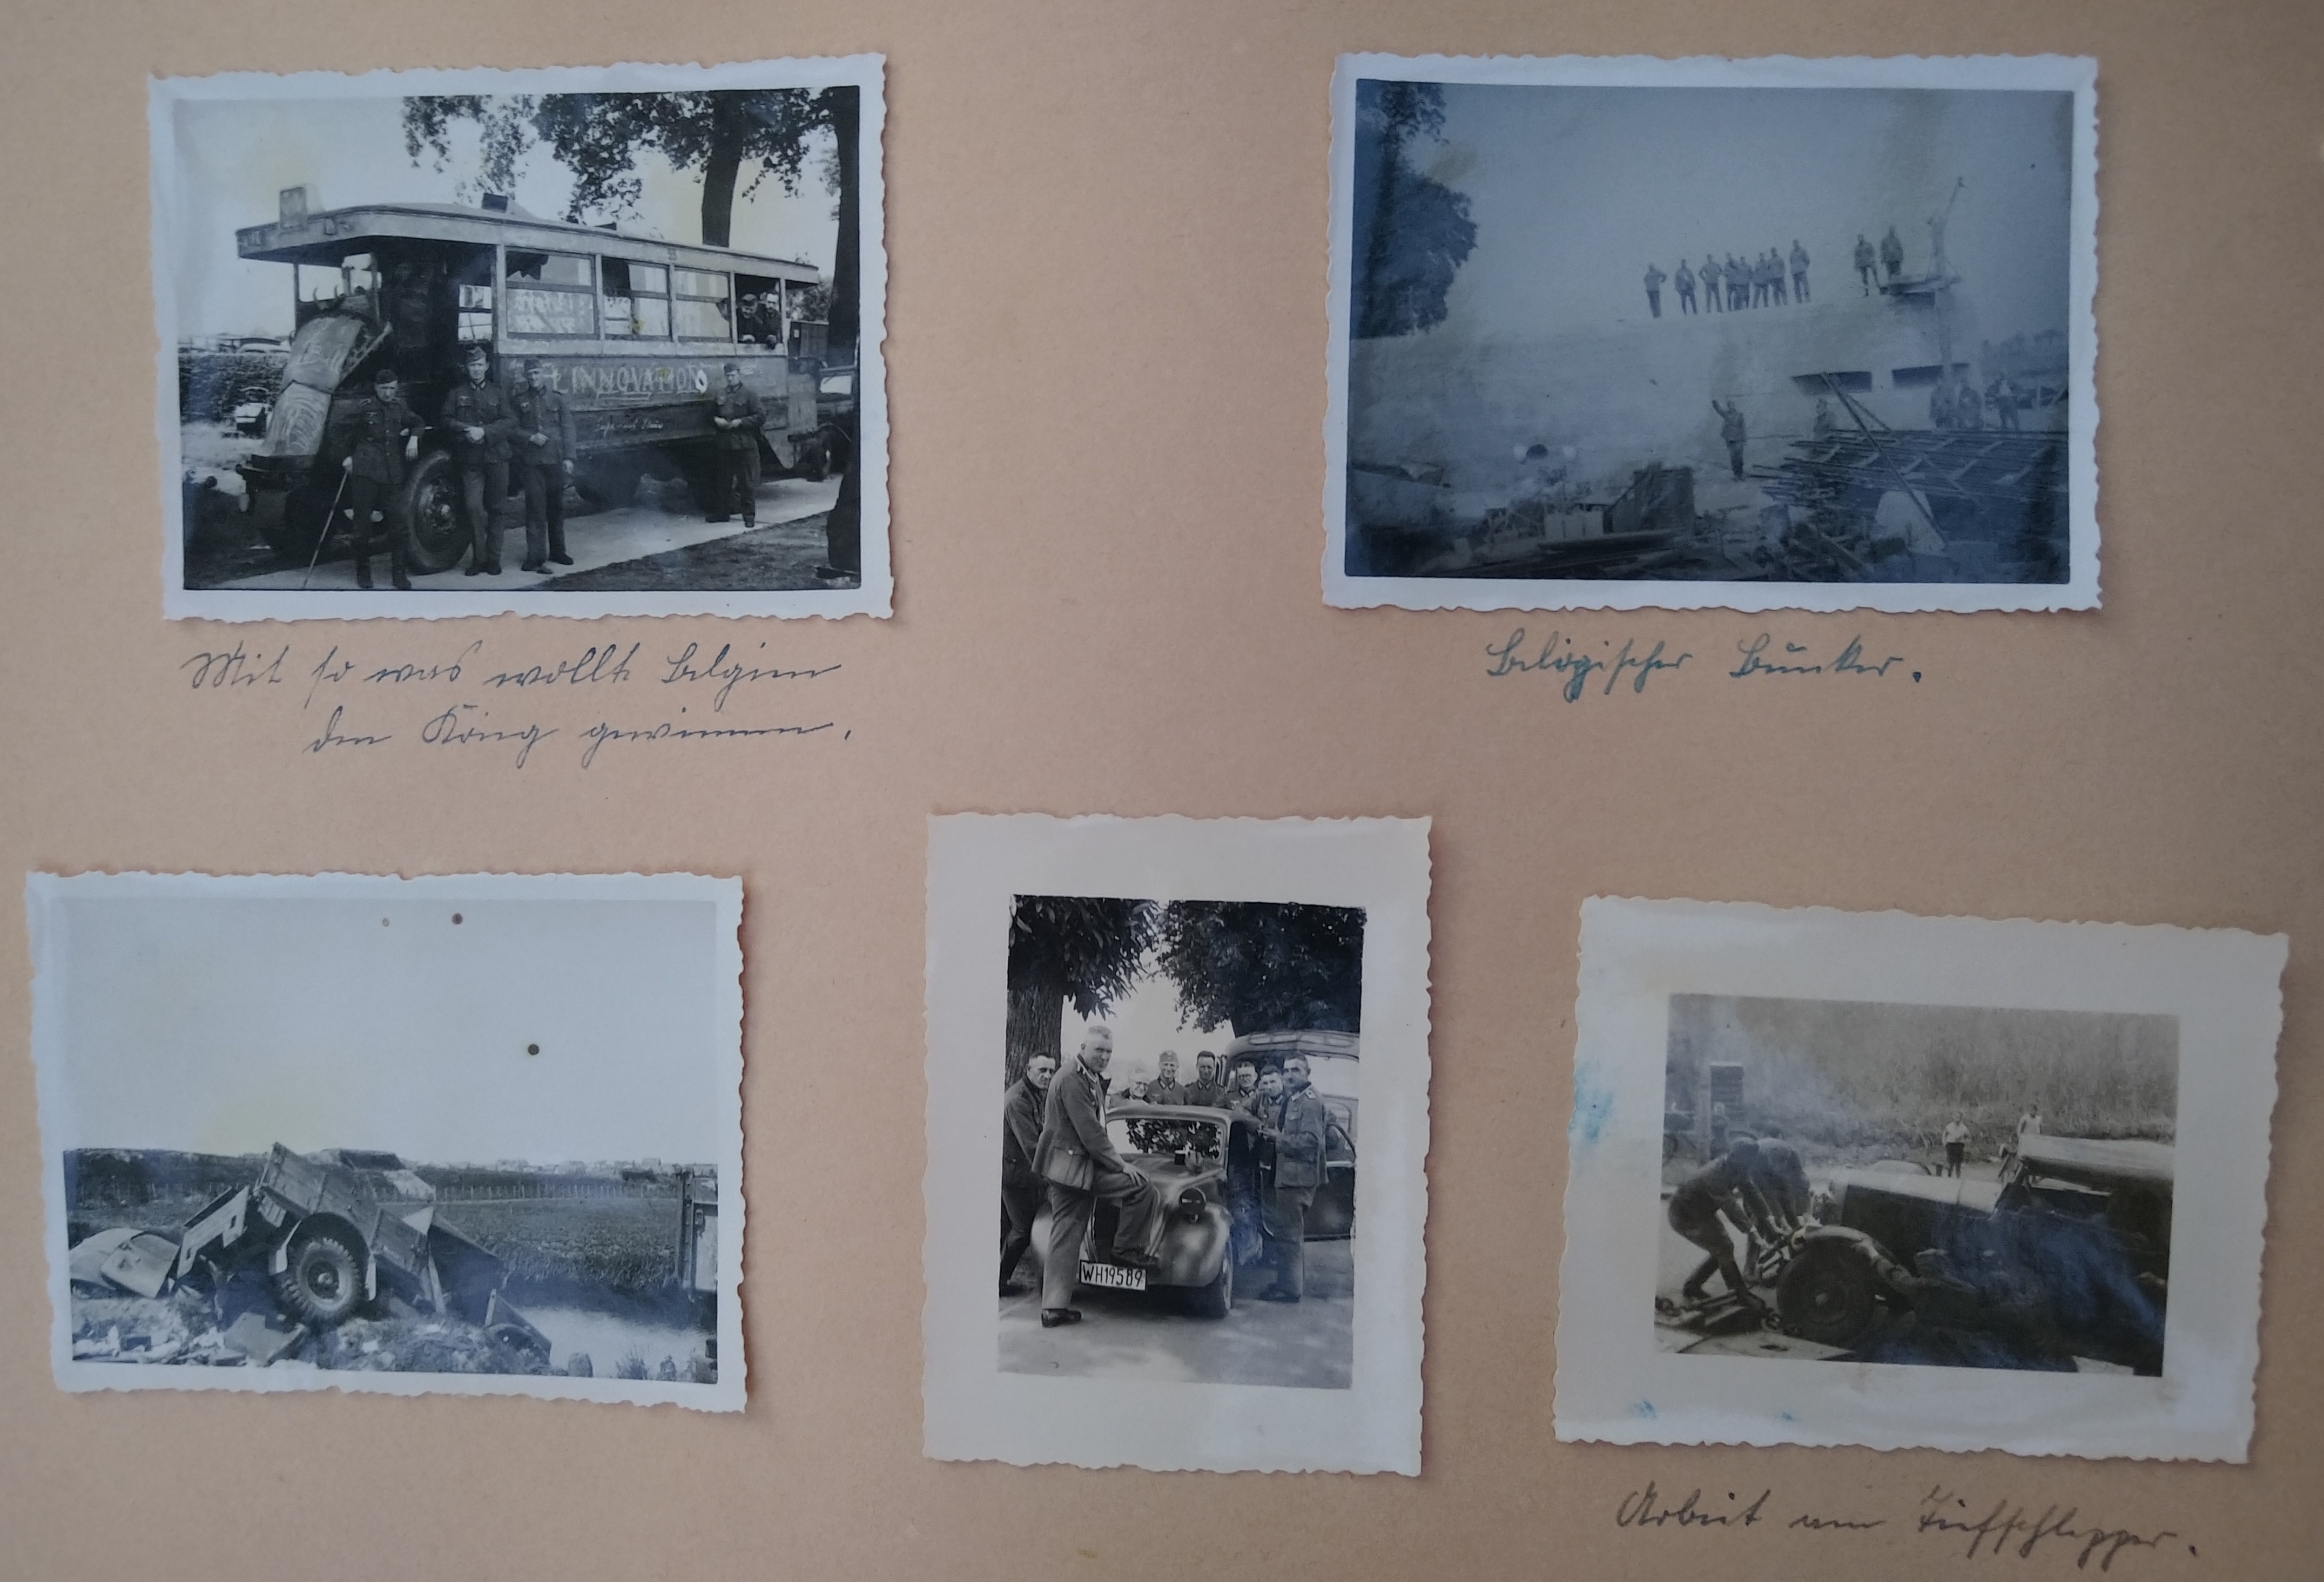 L'INNOVATION
Mit so was wollte Belgien
den Krieg gewinnen.
Belgischer Bunker.
WH19589
Arbeit am Tiefschlepper.